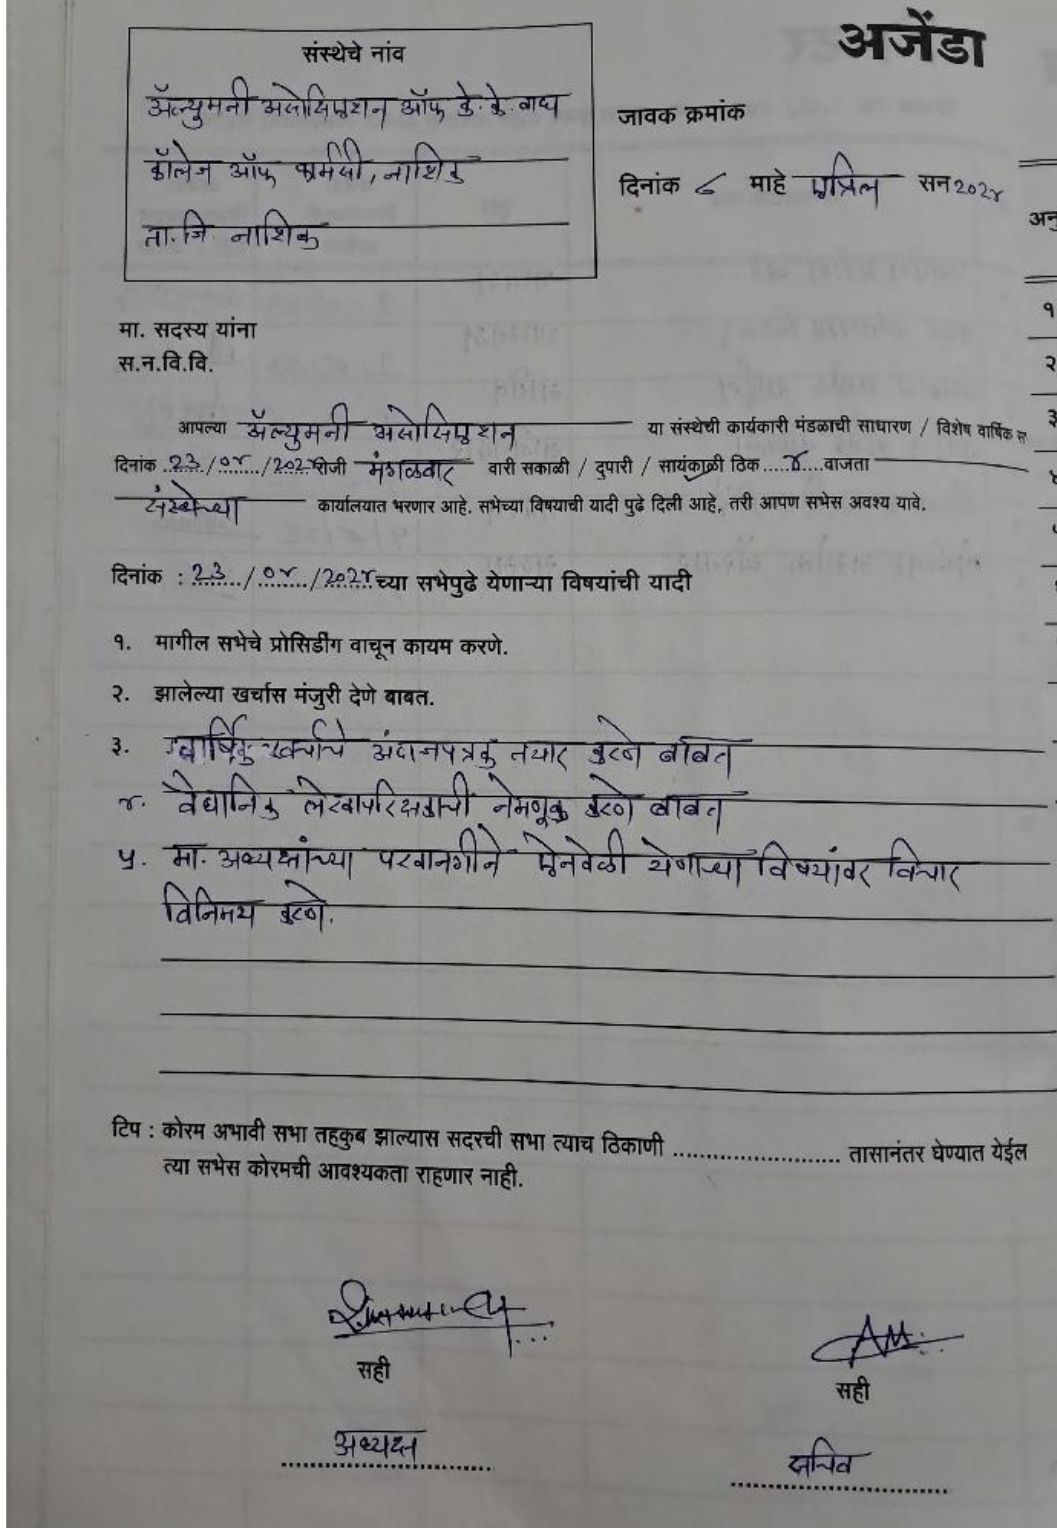 अजेंडा
संस्थेचे नांव
ॲल्युमनी असोसिएशन ऑफ के. के. वाघ
कॉलेज ऑफ फार्मसी, नाशिक
ता. जि. नाशिक
जावक क्रमांक
दिनांक ८ माहे एप्रिल सन २०२४
अनु
१
२
३
मा. सदस्य यांना
स.न.वि.वि.
आपल्या ॲल्युमनी असोसिएशन या संस्थेची कार्यकारी मंडळाची साधारण / विशेष वार्षिक स
दिनांक २३/०४/२०२४ रोजी मंगळवार वारी सकाळी / दुपारी / सायंकाळी ठिक.....४....वाजता
संस्थेच्या कार्यालयात भरणार आहे. सभेच्या विषयाची यादी पुढे दिली आहे, तरी आपण सभेस अवश्य यावे.
दिनांक : २३/०४/२०२४ च्या सभेपुढे येणाऱ्या विषयांची यादी
१. मागील सभेचे प्रोसिडींग वाचून कायम करणे.
२. झालेल्या खर्चास मंजुरी देणे बाबत.
३. वार्षिक खर्चाचे अंदाजपत्रक तयार करणे बाबत
४. वैधानिक लेखापरिक्षकाची नेमणूक करणे बाबत
५. मा. अध्यक्षांच्या परवानगीने ऐनवेळी येणाऱ्या विषयांवर विचार
विनिमय करणे.
टिप : कोरम अभावी सभा तहकुब झाल्यास सदरची सभा त्याच ठिकाणी ........................ तासानंतर घेण्यात येईल
त्या सभेस कोरमची आवश्यकता राहणार नाही.
सही
सही
अध्यक्ष
सचिव